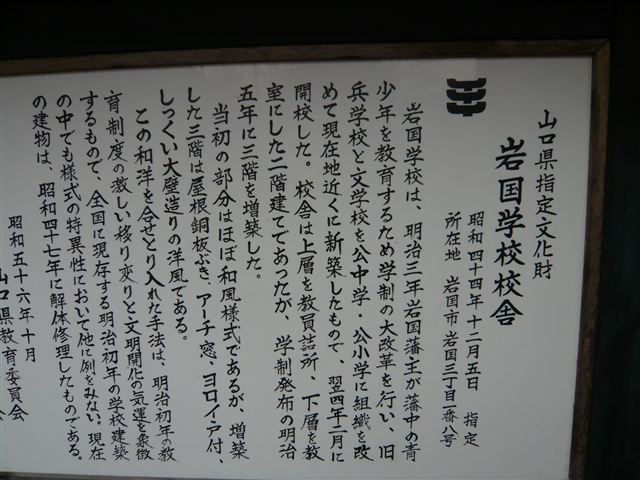 山口県指定文化財
岩国学校校舎
昭和四十四年十二月五日 指定
所在地 岩国市岩国三丁目一番八号
岩国学校は、明治三年岩国藩主が藩中の青
少年を教育するため学制の大改革を行い、旧
兵学校と文学校を公中学・公小学に組織を改
めて現在地近くに新築したもので、翌四年二月に
開校した。校舎は上層を教員詰所、下層を教
室にした二階建てであったが、学制発布の明治
五年に三階を増築した。
当初の部分はほぼ和風様式であるが、増築
した三階は屋根銅板ぶき、アーチ窓、ヨロイ戸付、
しっくい大壁造りの洋風である。
この和洋を合せとり入れた手法は、明治初年の教
育制度の激しい移り変りと文明開化の気運を象徴
するもので、全国に現存する明治初年の学校建築
の中でも様式の特異性において他に例をみない。現在
の建物は、昭和四十七年に解体修理したものである。
昭和五十六年十月
山口県教育委員会